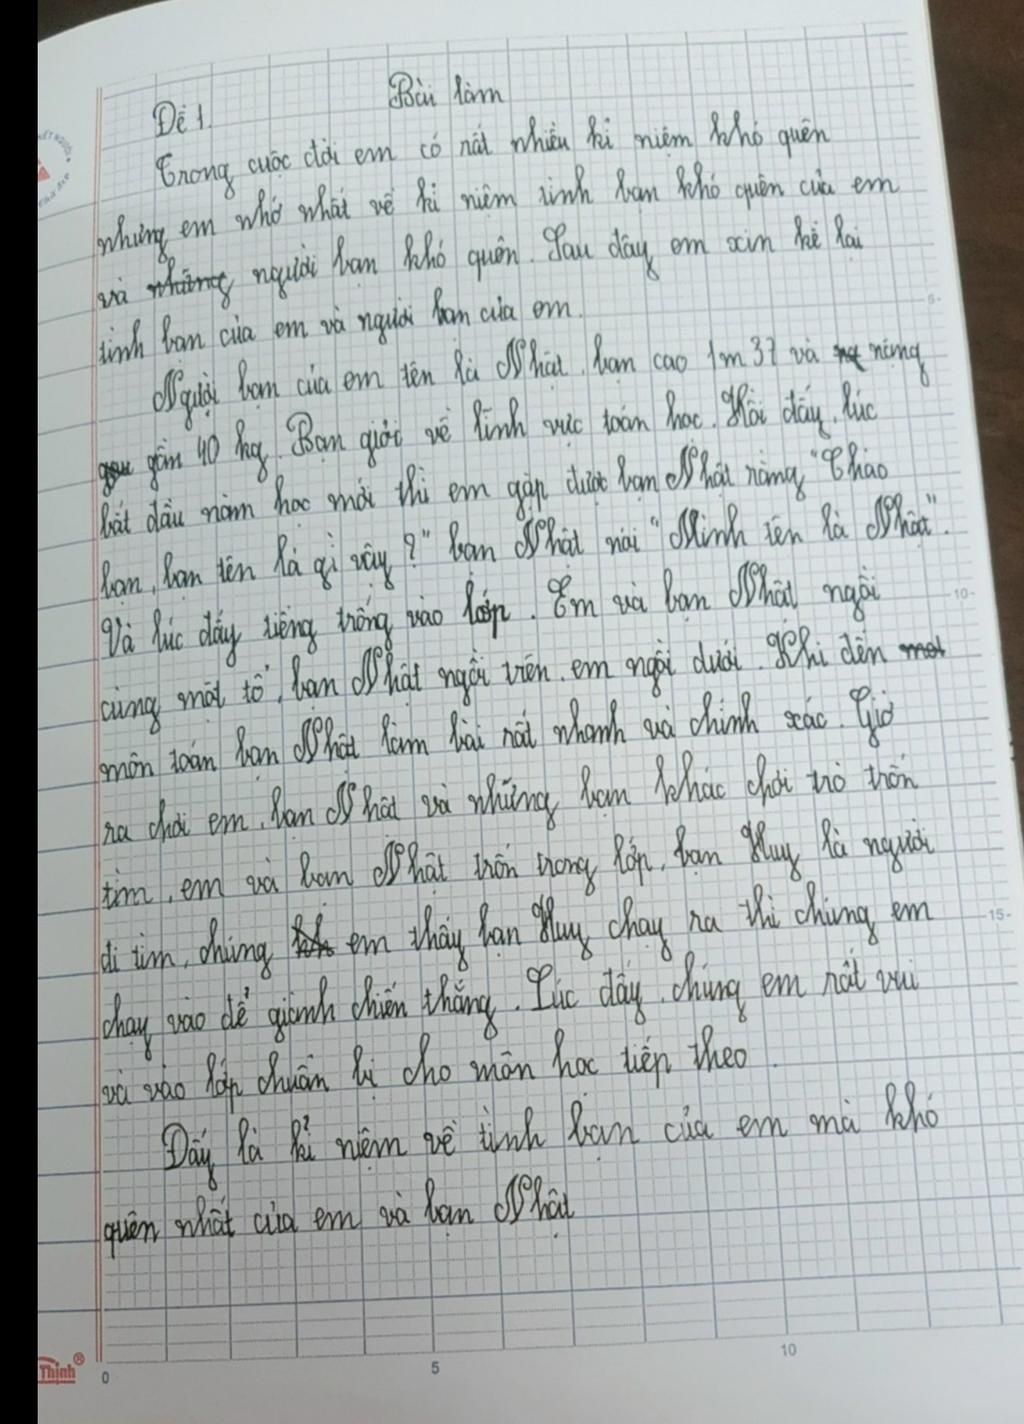 Bài làm
Đề 1.
Trong cuộc đời em có rất nhiều kỉ niệm khó quên
nhưng em nhớ nhất về kỉ niệm tình bạn khó quên của em
và những người bạn khó quên. Sau đây em xin kể lại
tình bạn của em và người bạn của em.
Người bạn của em tên là Nhật, bạn cao 1m37 và nặng
gần 40 kg. Bạn giỏi về lĩnh vực toán học. Hồi đấy, lúc
bắt đầu năm học mới thì em gặp được bạn Nhật rằng "Chào
bạn, bạn tên là gì vậy?" bạn Nhật nói "Mình tên là Nhật".
Và lúc đấy tiếng trống vào lớp. Em và bạn Nhật ngồi
cùng một tổ, bạn Nhật ngồi trên, em ngồi dưới. Khi đến
môn toán bạn Nhật làm bài rất nhanh và chính xác. Giờ
ra chơi em, bạn Nhật và những bạn khác chơi trò trốn
tìm, em và bạn Nhật trốn trong lớp, bạn Huy là người
đi tìm, chúng em thấy bạn Huy chạy ra thì chúng em
chạy vào để giành chiến thắng. Lúc đấy, chúng em rất vui
và vào lớp chuẩn bị cho môn học tiếp theo.
Đấy là kỉ niệm về tình bạn của em mà khó
quên nhất của em và bạn Nhật
5-
10-
-15-
Thịnh®
0
5
10